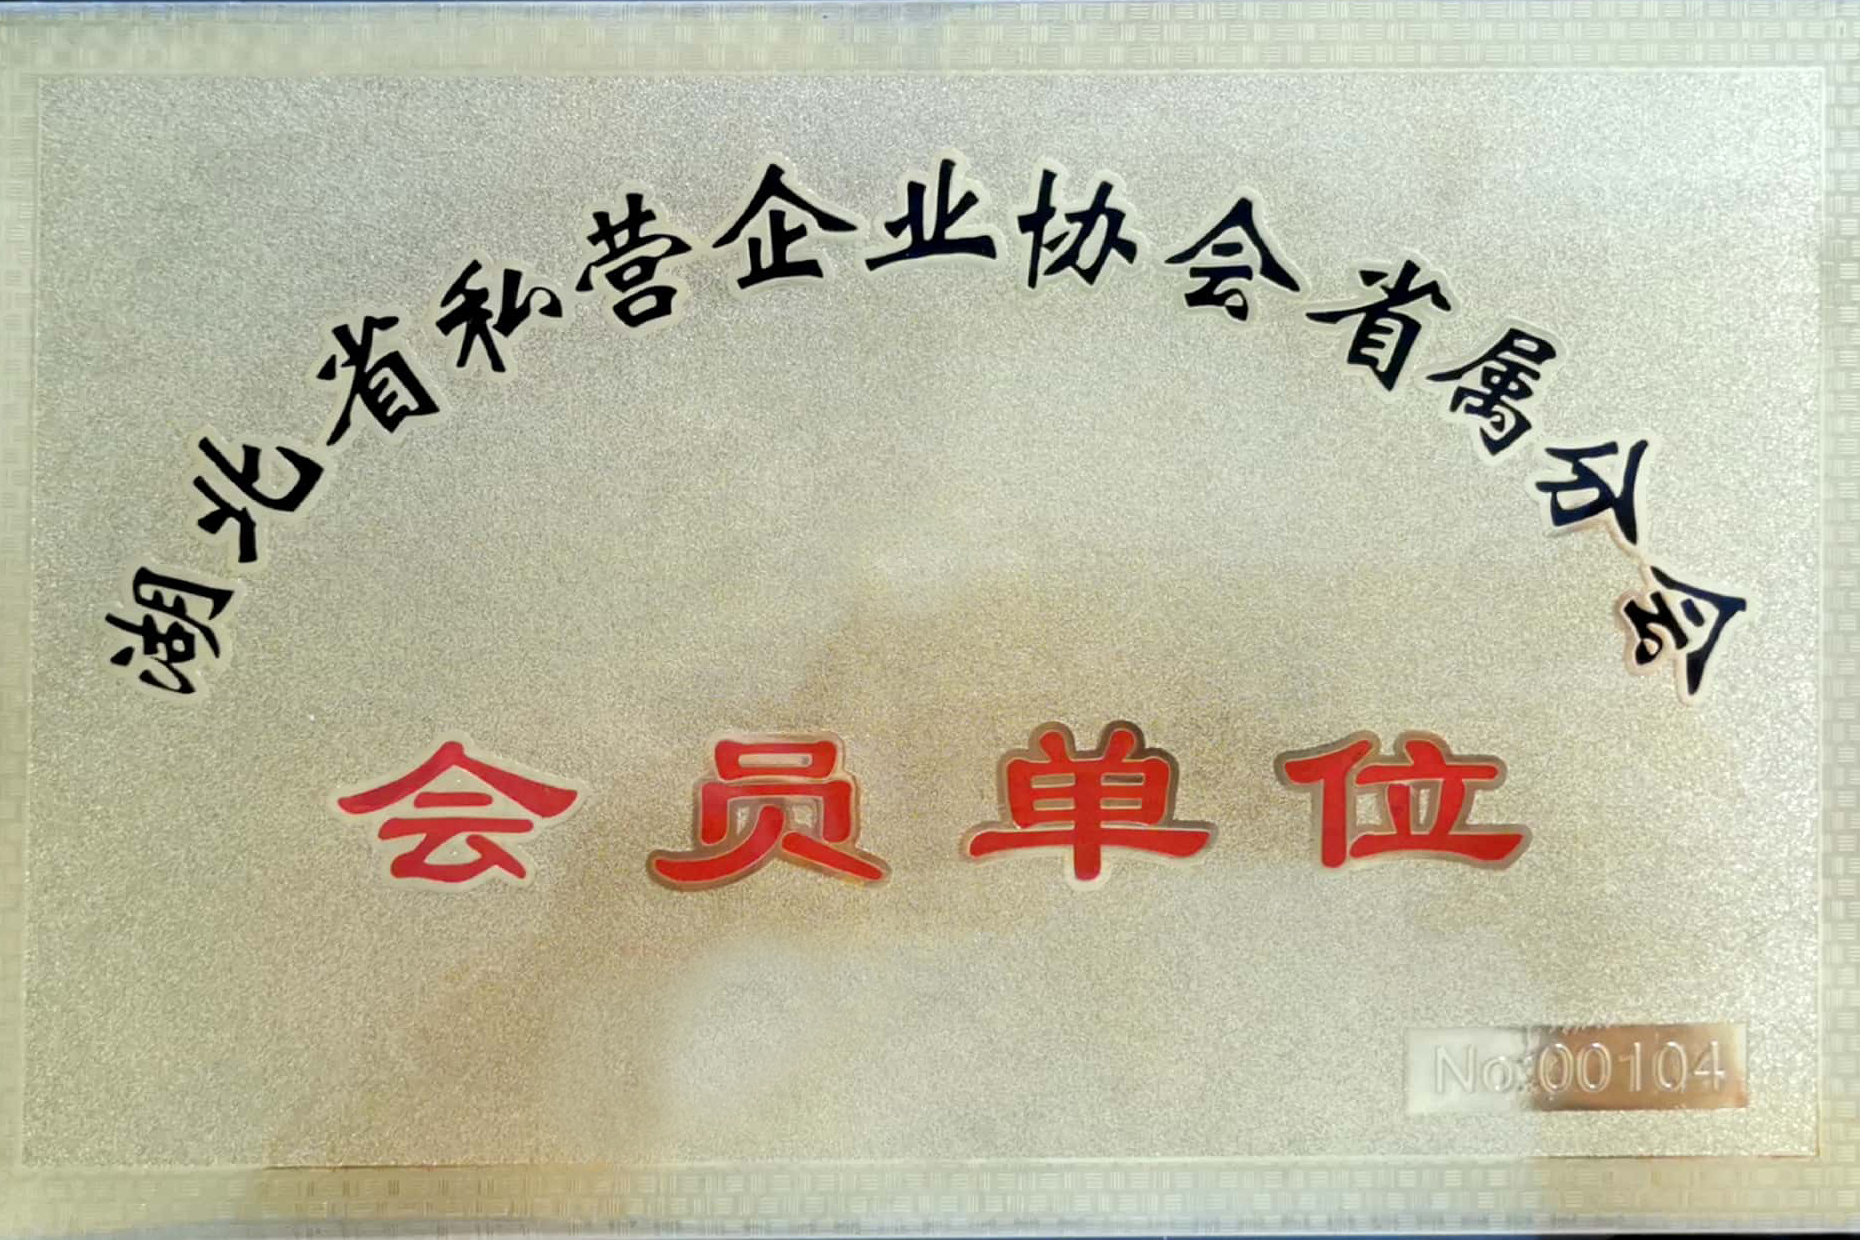 湖北省私营企业协会省属分会
会员单位
No:00104